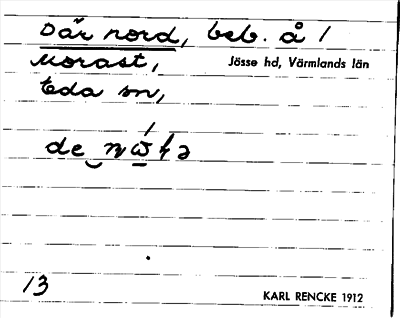 Där nord, beb. å 1
Morast, Jösse hd, Värmlands län
Eda sn,
13 KARL RENCKE 1912